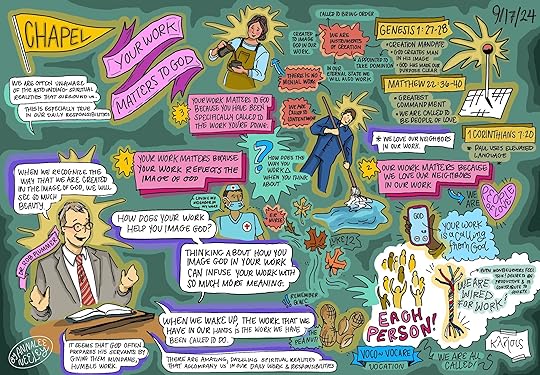 CHAPEL
YOUR WORK
MATTERS TO GOD
WE ARE OFTEN UNAWARE
OF THE ASTOUNDING SPIRITUAL
REALITIES THAT SURROUND US.
THIS IS ESPECIALLY TRUE
IN OUR DAILY RESPONSIBILITIES
CREATED
TO IMAGE
GOD IN OUR
WORK.
CALLED TO BRING ORDER
WE ARE
INSTRUMENTS
OF CREATION
THERE IS NO
MENIAL WORK
APPOINTED TO
TAKE DOMINION
IN OUR
ETERNAL STATE WE
WILL ALSO WORK
WE ARE
CALLED TO
CONTENTMENT
9/17/24
GENESIS 1:27-28
CREATION MANDATE
GOD CREATES MAN
IN HIS IMAGE
GOD HAS MADE OUR
PURPOSE CLEAR
MATTHEW 22:36-40
GREATEST
COMMANDMENT
WE ARE CALLED TO
BE PEOPLE OF LOVE
1 CORINTHIANS 7:20
PAUL USES ELEVATED
LANGUAGE
YOUR WORK MATTERS TO GOD
BECAUSE YOU HAVE BEEN
SPECIFICALLY CALLED TO
THE WORK YOU'RE DOING.
YOUR WORK MATTERS BECAUSE
YOUR WORK REFLECTS THE
IMAGE OF GOD
HOW DOES THE
WAY YOU
WORK
WHEN YOU
THINK ABOUT
WE LOVE OUR NEIGHBORS
IN OUR WORK.
OUR WORK MATTERS BECAUSE
WE LOVE OUR NEIGHBORS
IN OUR WORK
WE
ARE
PEOPLE
OF
LOVE!
WHEN WE RECOGNIZE THE
WAY THAT WE ARE CREATED
IN THE IMAGE OF GOD, WE WILL
SEE SO MUCH
BEAUTY.
HOW DOES YOUR WORK
HELP YOU IMAGE GOD?
LOVING MY
NEIGHBOR IN
MY WORK
EX:
NURSE
THINKING ABOUT HOW YOU
IMAGE GOD IN YOUR WORK
CAN INFUSE YOUR WORK WITH
SO MUCH MORE MEANING.
LUKE 12
GOD
YOUR WORK
IS A CALLING
from God
EVEN NONBELIEVERS FEEL
WE ARE
WIRED
FOR WORK!
REMEMBER
G.W.C.
THE
PEANUT!
EACH
PERSON!
VOCO~ VOCARE
VOCATION
WE ARE ALL
CALLED!
κλῆσις
WHEN WE WAKE UP, THE WORK THAT WE
HAVE IN OUR HANDS IS THE WORK WE HAVE
BEEN CALLED TO DO.
IT SEEMS THAT GOD OFTEN
PREPARES HIS SERVANTS BY
GIVING THEM MUNDANE,
HUMBLE WORK.
THERE ARE AMAZING, DAZZLING SPIRITUAL REALITIES
THAT ACCOMPANY US IN OUR DAILY WORK & RESPONSIBILITIES